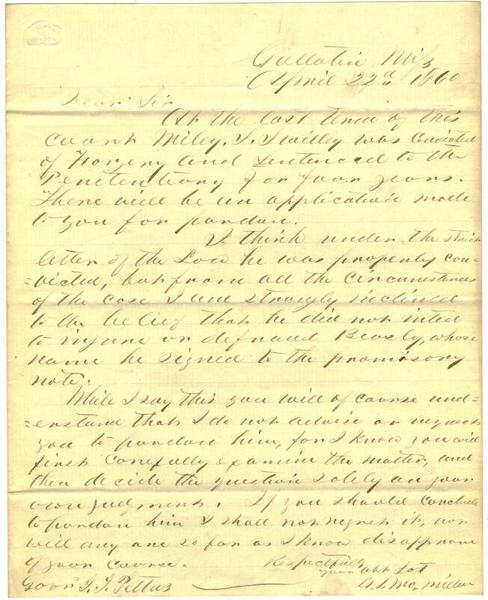 Gallatin Miss
April 22d 1860
Dear Sir
At the last term of this
court Miley. J. Swilley was Convicted
of Forgery and Sentenced to the
Penitentiary for four years.
There will be an application made
to you for pardon.
I think under the strict
letter of the Law he was properly con-
=victed, but from all the circumstances
of the case I am strongly inclined
to the belief that he did not intend
to injure or defraud Beasly, whose
name he signed to the promisory
note.
While I say this you will of course und-
=erstand that I do not advise or request
you to pardon him, for I know you will
first carefully examine the matter, and
then decide the question solely on your
own judgment. If you should conclude
to pardon him I shall not regret it, nor
will any one so far as I know disapprove
of your course.
Respectfully
your obt Svt
Govr J. J. Pettus
McMillan